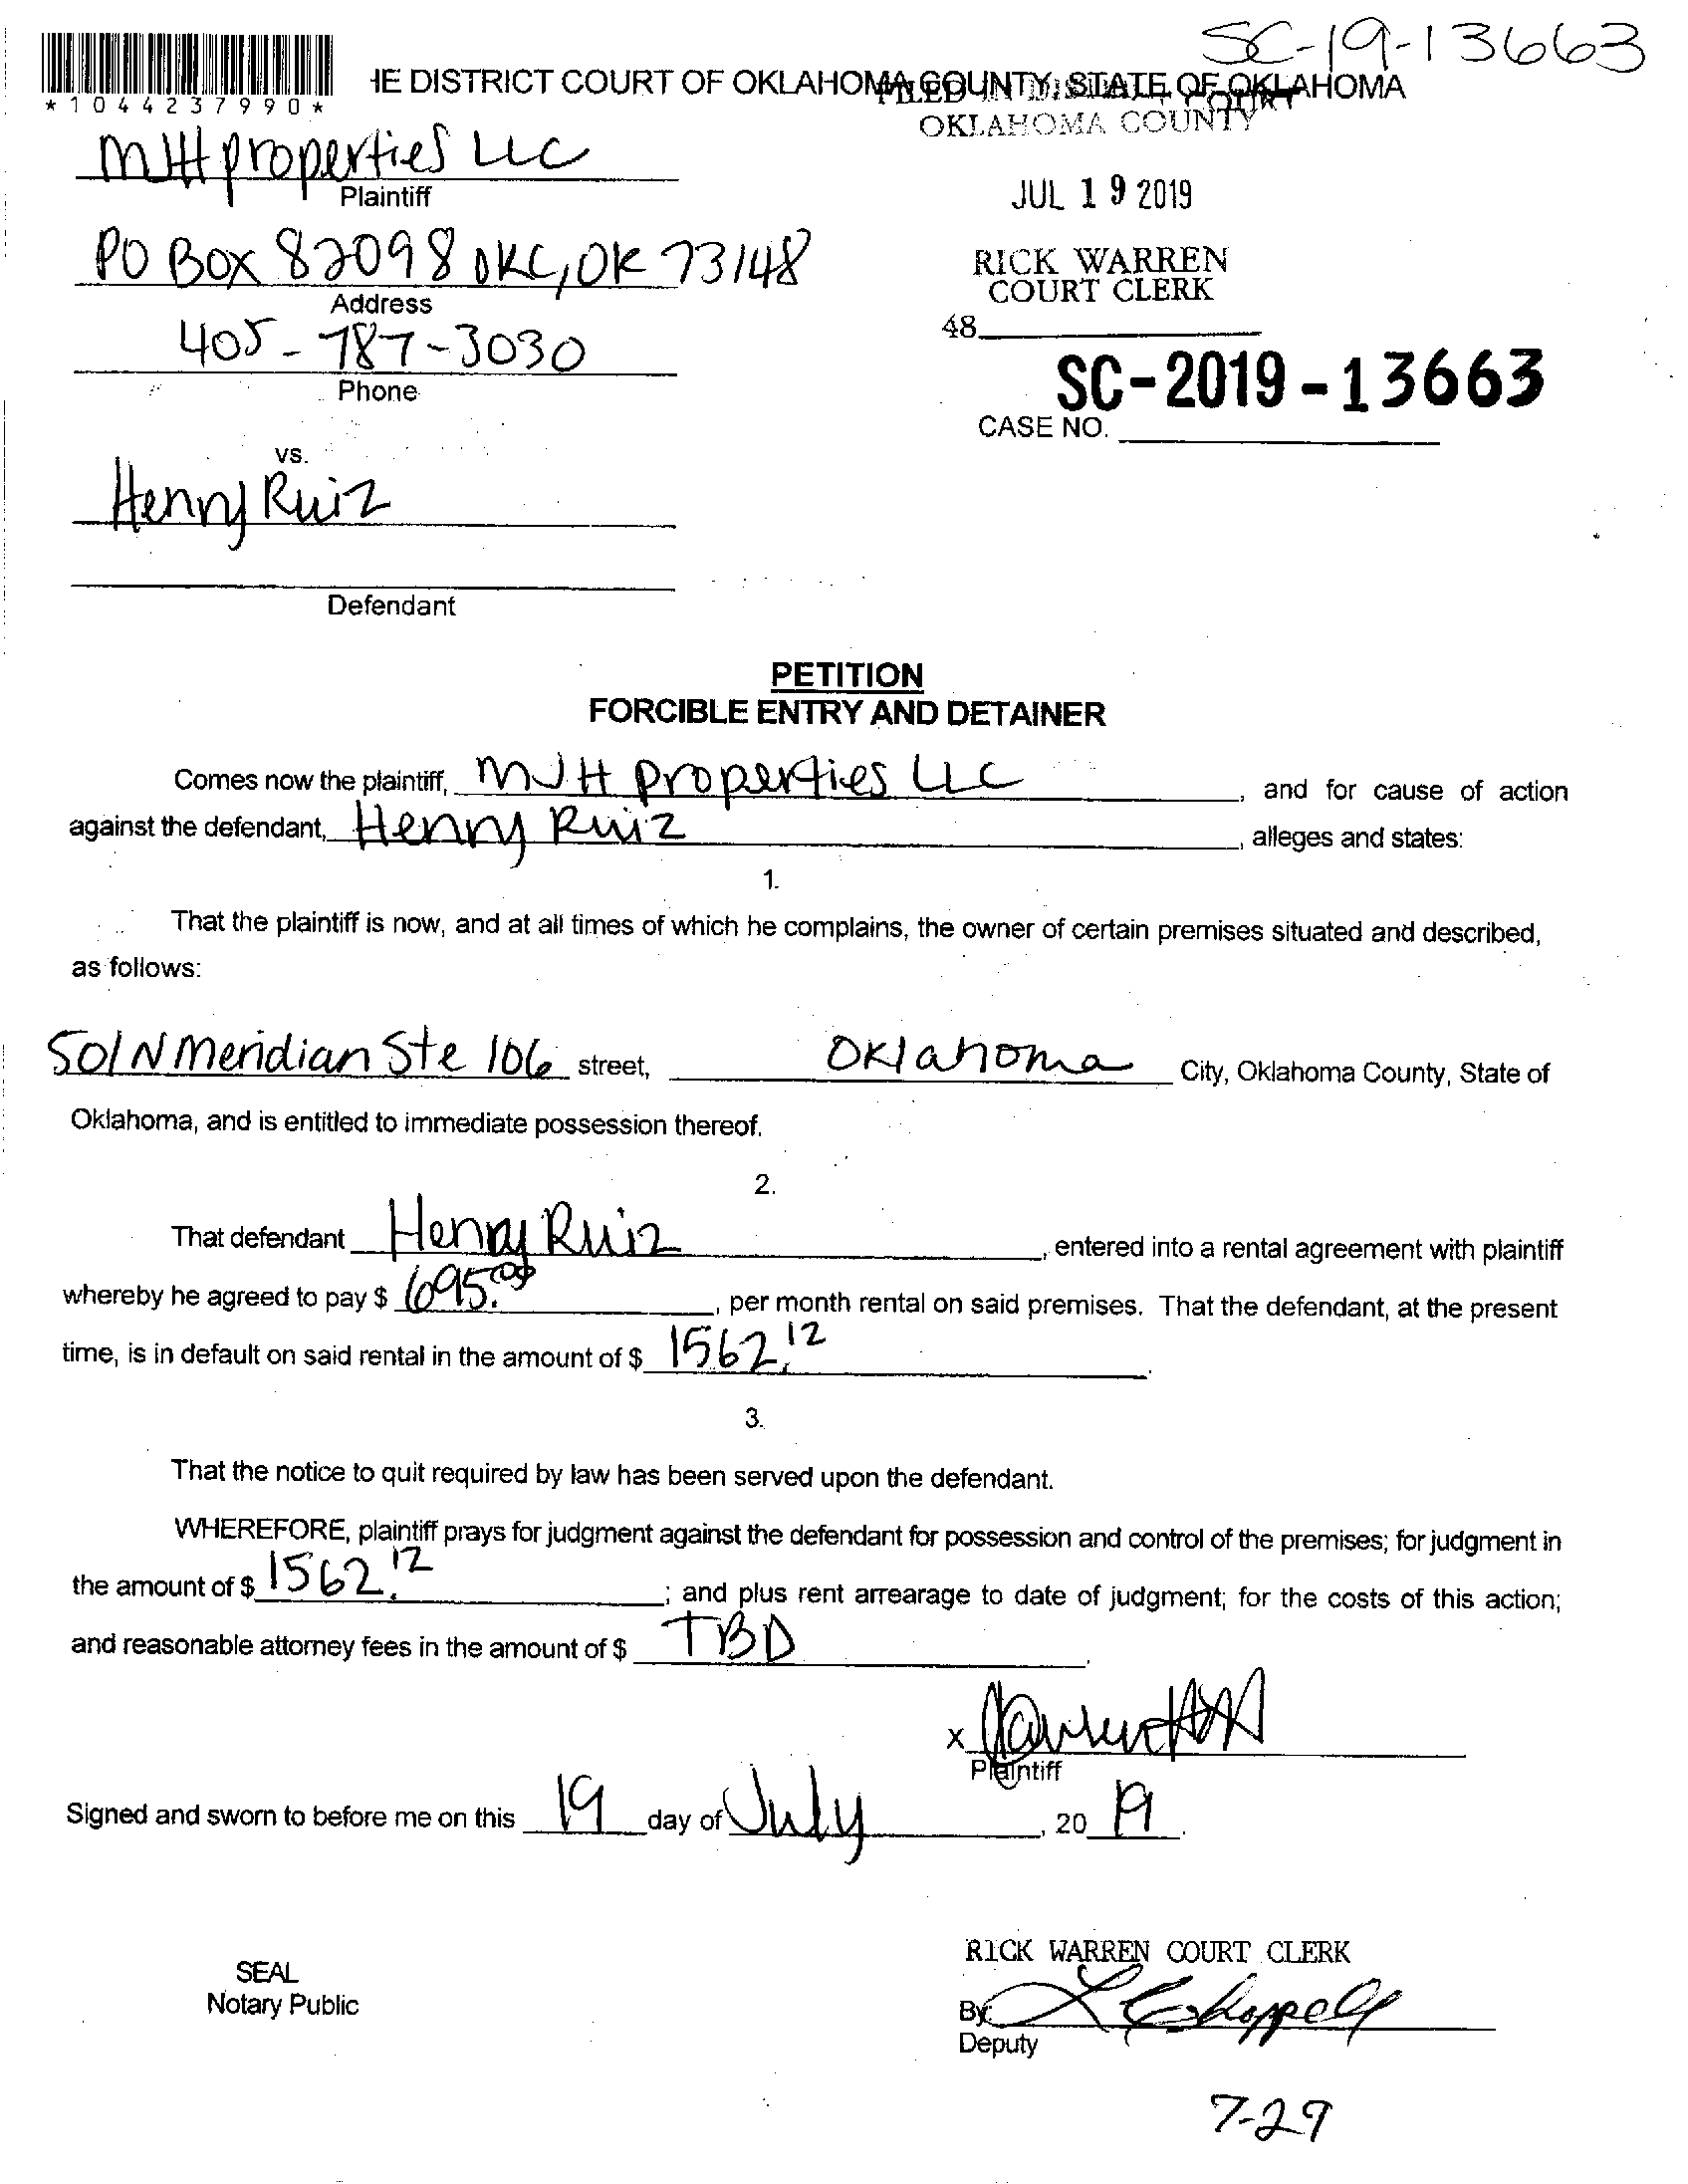 SC-19-13663
*1044237990*
HE DISTRICT COURT OF OKLAHOMA COUNTY, STATE OF OKLAHOMA
FILED IN DISTRICT COURT
OKLAHOMA COUNTY
MJH properties LLC
Plaintiff
JUL 19 2019
PO Box 82098 OKC, OK 73148
Address
RICK WARREN
COURT CLERK
405-787-3030
Phone
48
SC-2019-13663
CASE NO.
vs.
Henry Ruiz
Defendant
PETITION
FORCIBLE ENTRY AND DETAINER
Comes now the plaintiff, MJH properties LLC, and for cause of action
against the defendant, Henry Ruiz, alleges and states:
1.
That the plaintiff is now, and at all times of which he complains, the owner of certain premises situated and described,
as follows:
501 N Meridian Ste 106 street, Oklahoma City, Oklahoma County, State of
Oklahoma, and is entitled to immediate possession thereof.
2.
That defendant Henry Ruiz, entered into a rental agreement with plaintiff
whereby he agreed to pay $ 695.00, per month rental on said premises. That the defendant, at the present
time, is in default on said rental in the amount of $ 1562.12.
3.
That the notice to quit required by law has been served upon the defendant.
WHEREFORE, plaintiff prays for judgment against the defendant for possession and control of the premises; for judgment in
the amount of $ 1562.12; and plus rent arrearage to date of judgment; for the costs of this action;
and reasonable attorney fees in the amount of $ TBD.
x
Plaintiff
Signed and sworn to before me on this 19 day of July, 2019.
SEAL
Notary Public
RICK WARREN COURT CLERK
By: L Chappell
Deputy
7-29